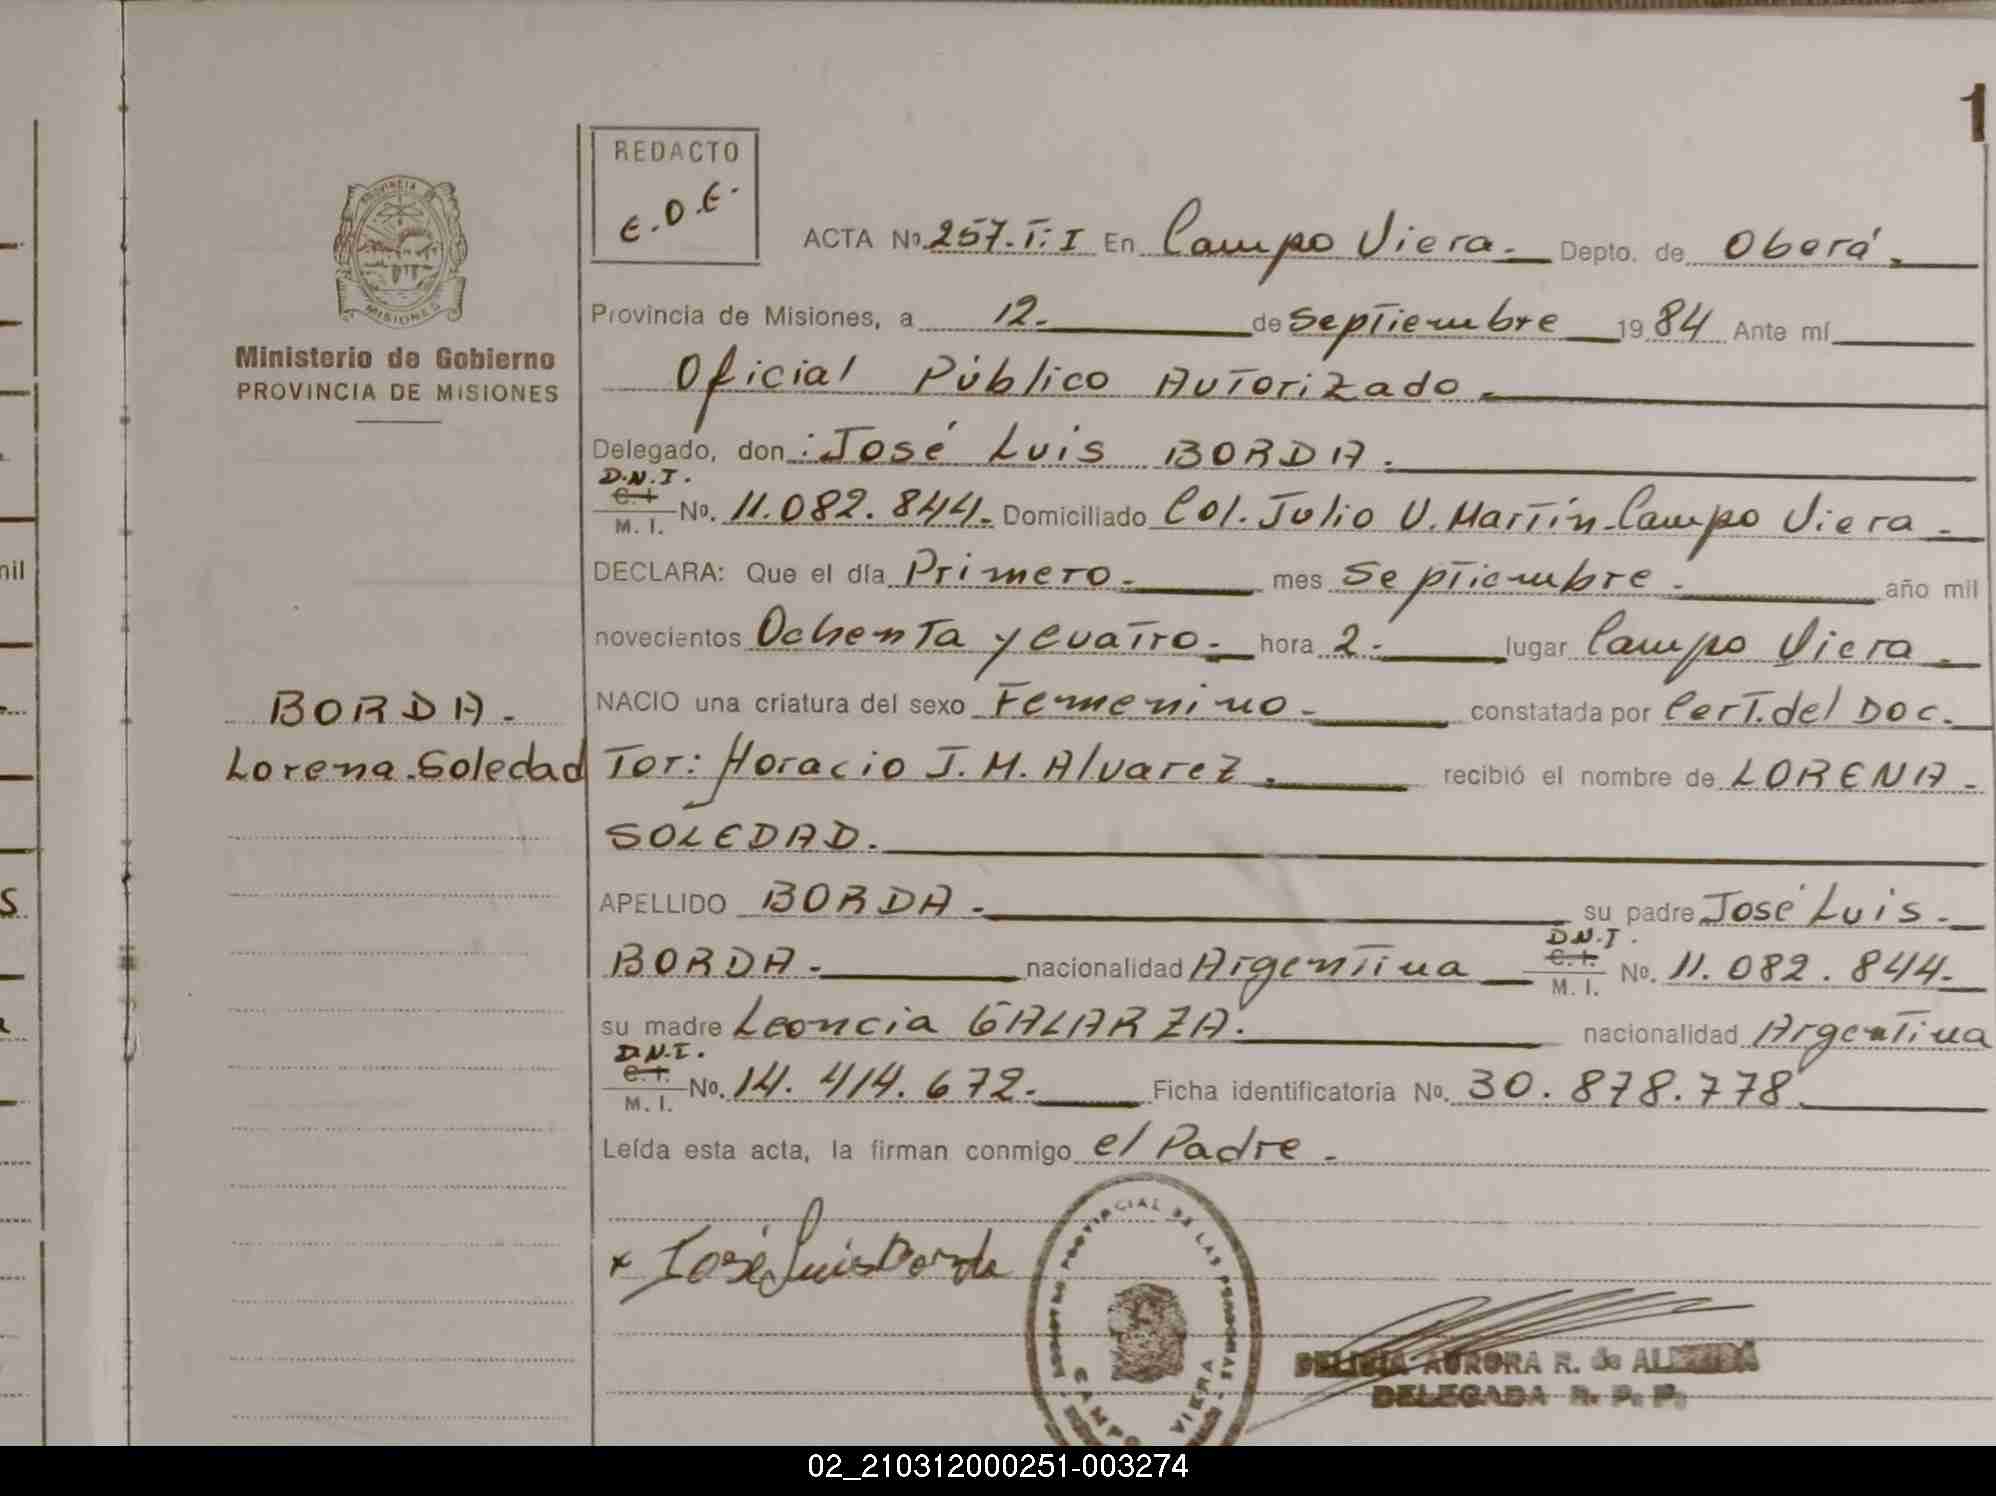 1
REDACTO
E.D.E.
ACTA No. 257.T:I En Campo Viera.- Depto. de Oberá.
Provincia de Misiones, a 12.- de Septiembre 1984 Ante mí
Oficial Público Autorizado.
Ministerio de Gobierno
PROVINCIA DE MISIONES
Delegado, don: José Luis BORDA.
D.N.I.
C.I.
M. I. No. 11.082.844.- Domiciliado Col. Julio U. Martín-Campo Viera.-
DECLARA: Que el día Primero.- mes Septiembre.- año mil
novecientos Ochenta y cuatro.- hora 2.- lugar Campo Viera.-
BORDA.-
NACIO una criatura del sexo Femenino.- constatada por Cert. del Doc.
Lorena.Soledad
Tor: Horacio J. M. Alvarez. recibió el nombre de LORENA-
SOLEDAD.
APELLIDO BORDA.- su padre José Luis.-
BORDA.- nacionalidad Argentina
D.N.I.
C.I.
M. I. No. 11.082.844.-
su madre Leoncia GALARZA. nacionalidad Argentina
D.N.I.
C.I.
M. I. No. 14.414.672.- Ficha identificatoria No. 30.878.778.
Leída esta acta, la firman conmigo el Padre.-
x José Luis Borda
PROVINCIAL DE LAS PERSONAS
CAMPO VIERA
AURORA R. de ALMEIDA
DELEGADA R. P. P.
nil
S
02_210312000251-003274